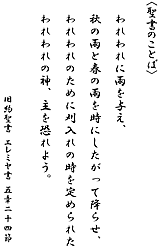 〈聖書のことば〉
われわれに雨を与え、
秋の雨と春の雨を時にしたがって降らせ、
われわれのために刈入れの時を定められた
われわれの神、主を恐れよう。
旧約聖書 エレミヤ書 五章二十四節